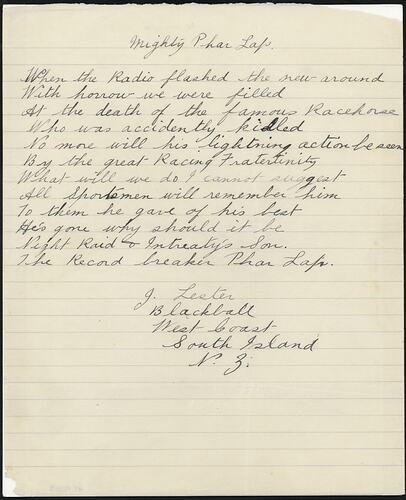 Mighty Phar Lap.
When the Radio flashed the new around
With horrow we were filled
At the death of the famous Racehorse
Who was accidently killed
No more will his lightning action be seen
By the great Racing Fraternity
What will we do I cannot suggest
All Sportsmen will remember him
To them he gave of his best
He's gone why should it be
Night Raid & Intreaty's Son.
The Record breaker Phar Lap.
J. Lester
Blackball
West Coast
South Island
N. Z.